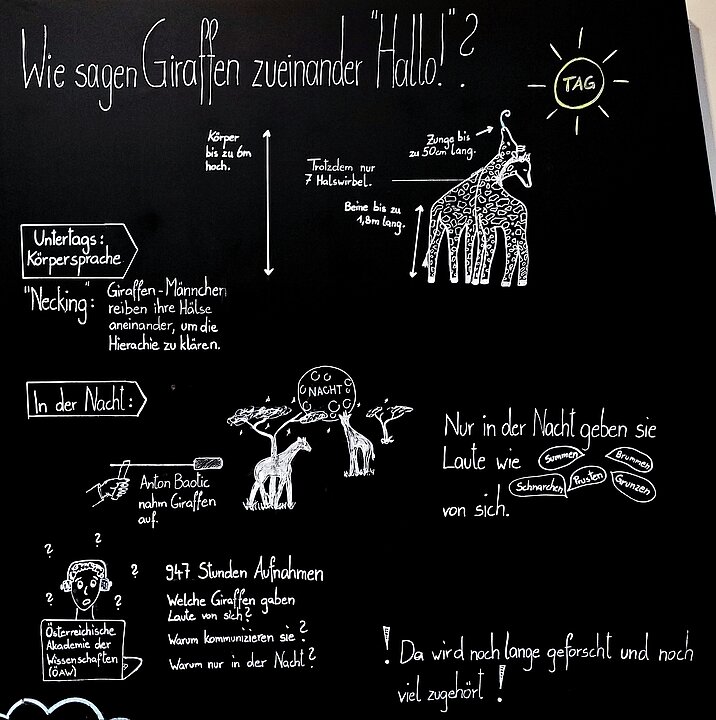 Wie sagen Giraffen zueinander "Hallo!"?
TAG
Körper
bis zu 6m
hoch.
Zunge bis
zu 50cm lang.
Trotzdem nur
7 Halswirbel.
Beine bis zu
1,8m lang.
Untertags:
Körpersprache
"Necking":
Giraffen-Männchen
reiben ihre Hälse
aneinander, um die
Hierachie zu klären.
In der Nacht:
NACHT
Anton Baotic
nahm Giraffen
auf.
Nur in der Nacht geben sie
Laute wie
Summen
Brummen
Schnarchen
Prusten
Grunzen
von sich.
? ? ? ? ?
Österreichische
Akademie der
Wissenschaften
(ÖAW)
947 Stunden Aufnahmen
Welche Giraffen gaben
Laute von sich?
Warum kommunizieren sie?
Warum nur in der Nacht?
! Da wird noch lange geforscht und noch
viel zugehört !